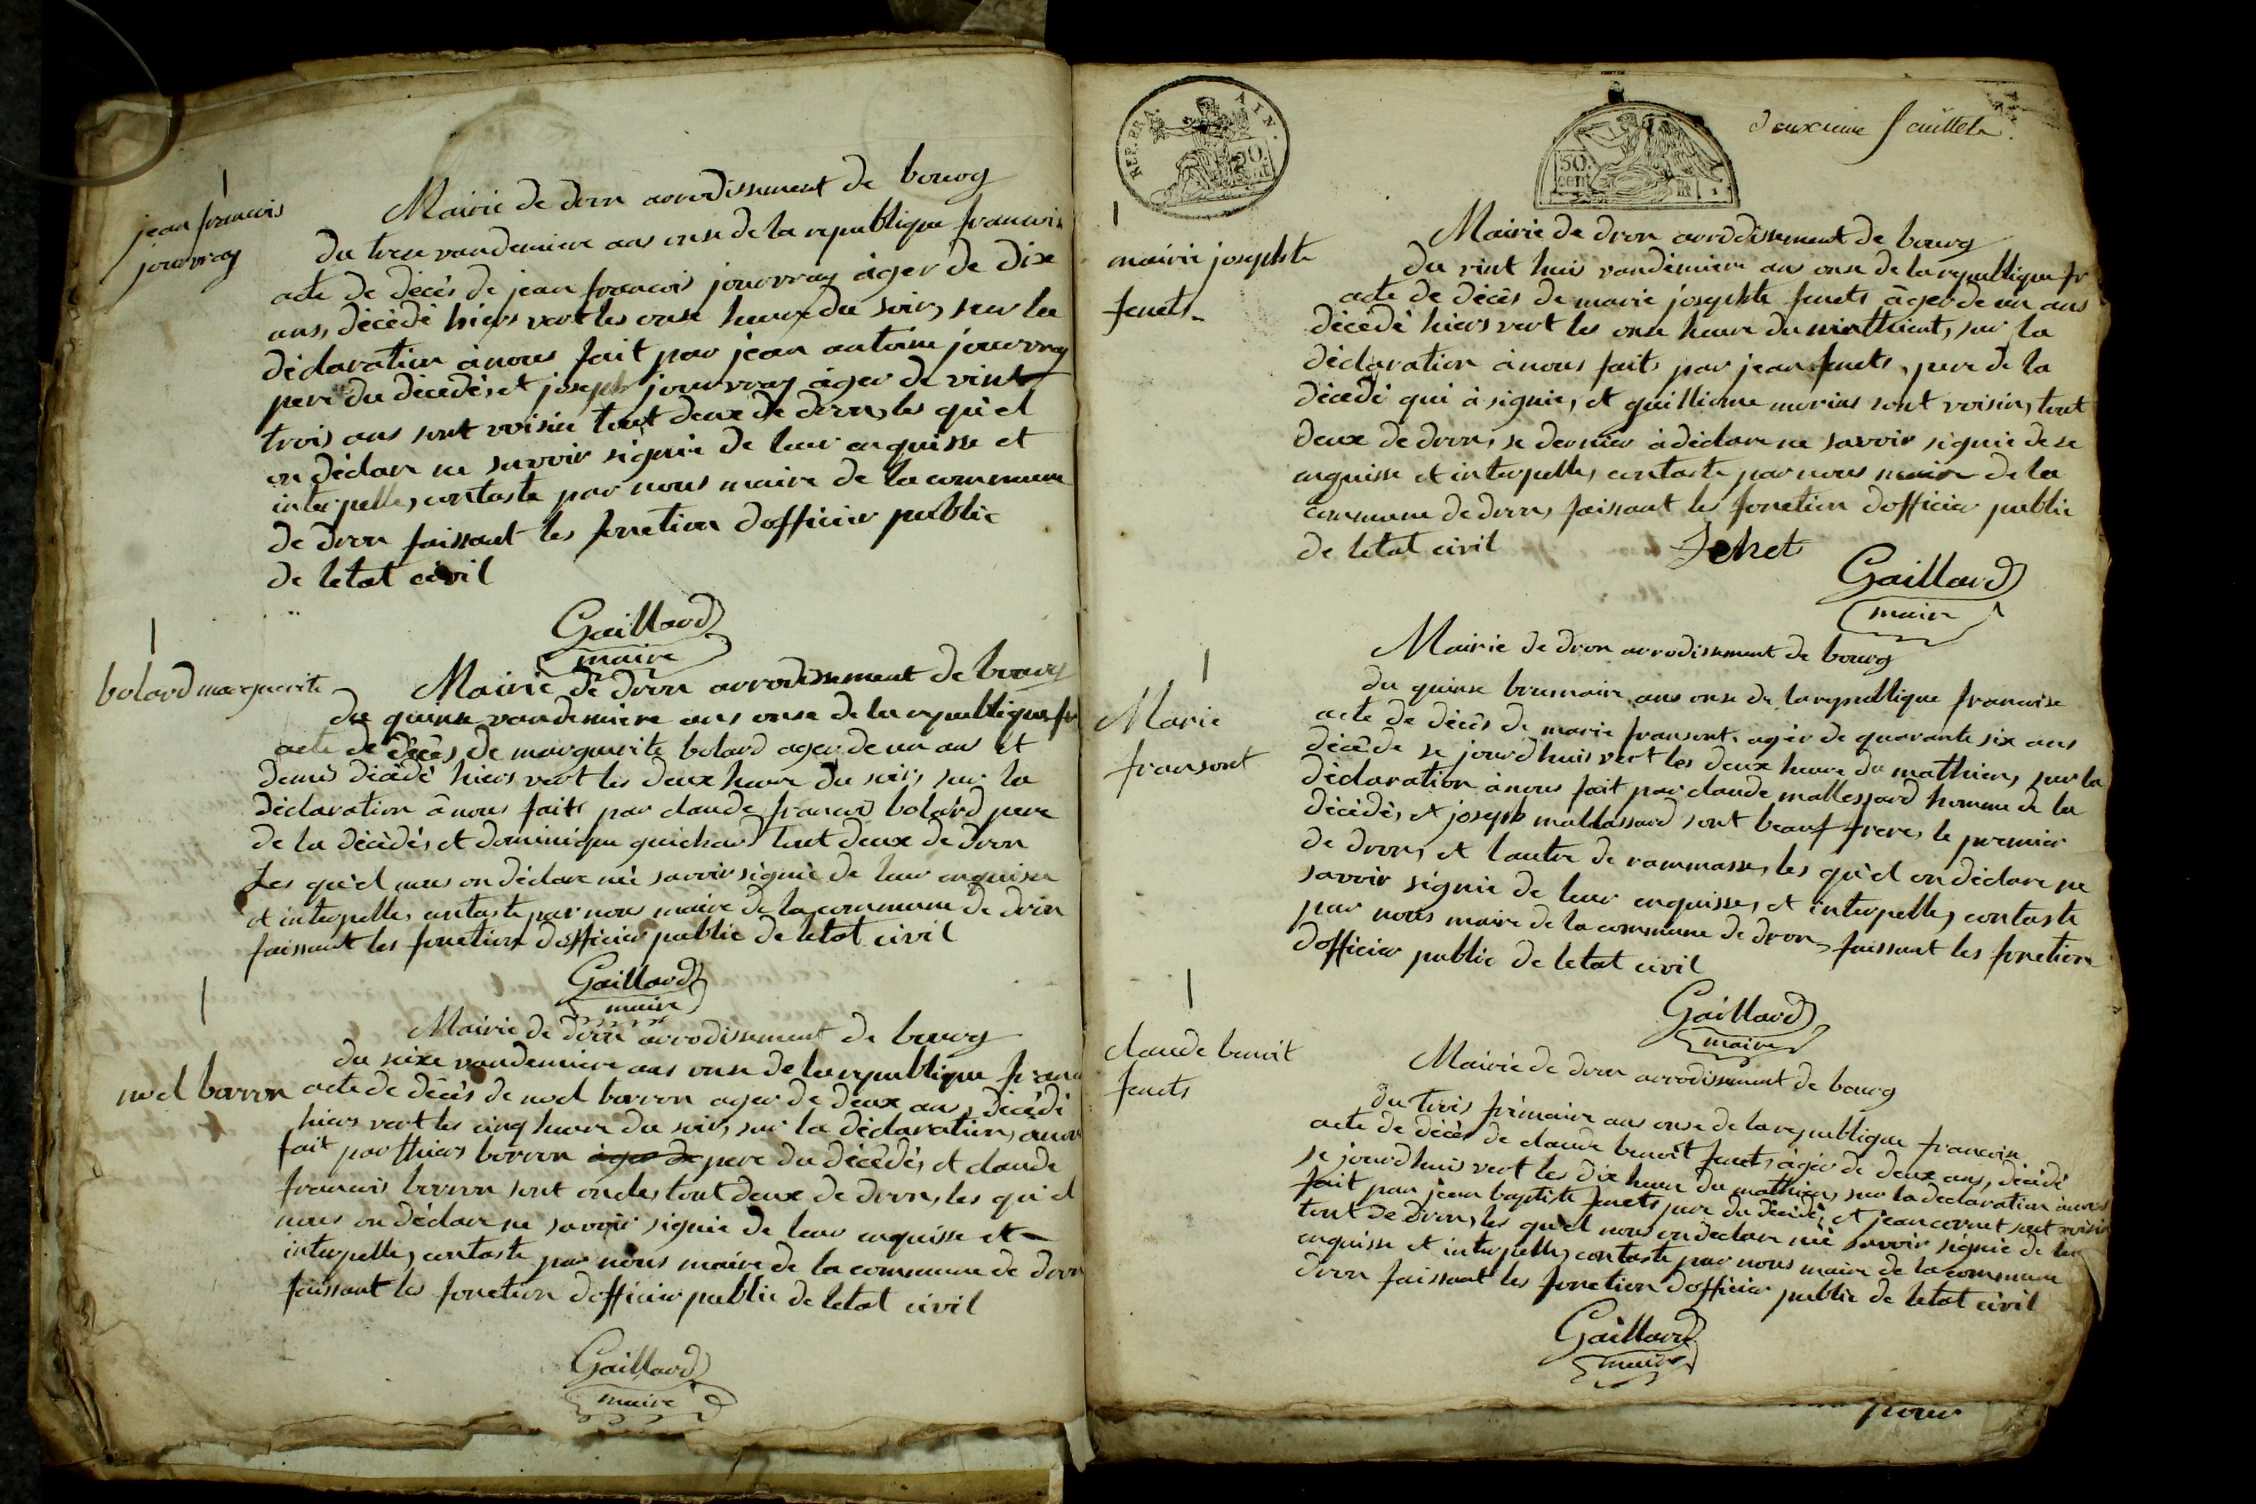 jean francois
jouvray
Mairie de dron arrodissement de bourg
du trese vandemiere ans onse de la republique francois
acte de décès de jean francois jouvray âger de dix
ans, décèdé hiers vert les onse heure du soir, sur la
déclaration à nous fait par jean antoine jouvray
pere du décedé, et joseph jouvray âger de vint
trois ans sont voisin tout deux de dron, les qu'el
on déclare ne savoir signie de leur enquisse et
interpelle, contaste par nous maire de la commune
de dron faissant les fonction dofficier public
de letat civil
Gaillard
maire
bolard marguerite
Mairie de dron arrodissement de bourg
du quinse vandemiere ans onse de la republique fr
acte de décès de marguerite bolard ager de un ans et
demis décédé hiers vert les deux heure du soir, sur la
déclaration à nous faits par claude francois bolard pere
de la décèdé, et dominique guichard tout deux de dron
Les qu'el nous on déclare né savoir signié de leur enquise
et interpelle, contaste par nous maire de la commune de dron
faissant les fonction dofficier public de letat civil
Gaillard
maire
noel borron
Mairie de dron arrodissement de bourg
du seixe vandemiere ans onse de la republique franc
acte de décès de noel borron ager de deux ans, décédé
hiers vert les cinq heure du soir, sur la déclaration, anous
fait par thiers borron âger de pere du décédé, et claude
francois borron sont oncle, tout deux de dron, les qu'el
nous on déclare ne savoir signie de leur enquisse et
interpelle, contaste par nous maire de la commune de dron
faissant les fonction dofficier public de letat civil
Gaillard
maire
REP. FRA.
AIN.
50.
cent
deuxieme feuillet
mairie josephte
fenets
Mairie de dron arrodissement de bourg
du vint huis vandémiere ans onse de la republique fr
acte de décès de marie josephte fenets âger de un ans
décédé hiers vert les onse heure du minthient, sur la
déclaration à nous faits par jean fenets, pere de la
décédé qui à signie, et guilliome morins sont voisin, tout
deux de dron, se dernier à déclare ne savoir signie de se
enquisse et interpelle, contaste par nous maire de la
commune de dron, faissant les fonction dofficier public
de letat civil
Fenet
Gaillard
maire
Marie
fransont
Mairie de dron arrodissement de bourg
du quinse brumaire ans onse de la republique francoise
acte de décès de marie fransont, agér de quarante six ans
décéde se jourdhuis vert les deux heure du mathien, sur la
déclaration à nous fait par claude mallessard homme de la
décédé, et joseph mallassard sont beauf frere, le premier
de dron, et lautre de rammasse, les qu'el on déclare ne
savoir signie de leur enquisse, et interpelle, contaste
par nous maire de la commune de dron, faissant les fonction
dofficier public de letat civil
Gaillard
maire
claude benoit
fenets
Mairie de dron arrodissement de bourg
du trois frimaire ans onse de la republique francoise
acte de décès de claude benoît fenets, âgér de deux ans, décédé
se jourdhuis vert les dix heure du mathien, sur la déclaration anous
fait par jean baptiste fenets pere du décédé, et jean cornet sont voisin
tout de dron, les qu'el nous on declare né savoir signie de leur
enquisse et interpelle, contaste par nous maire de la commune
dron faissant les fonction dofficier public de letat civil
Gaillard
maire